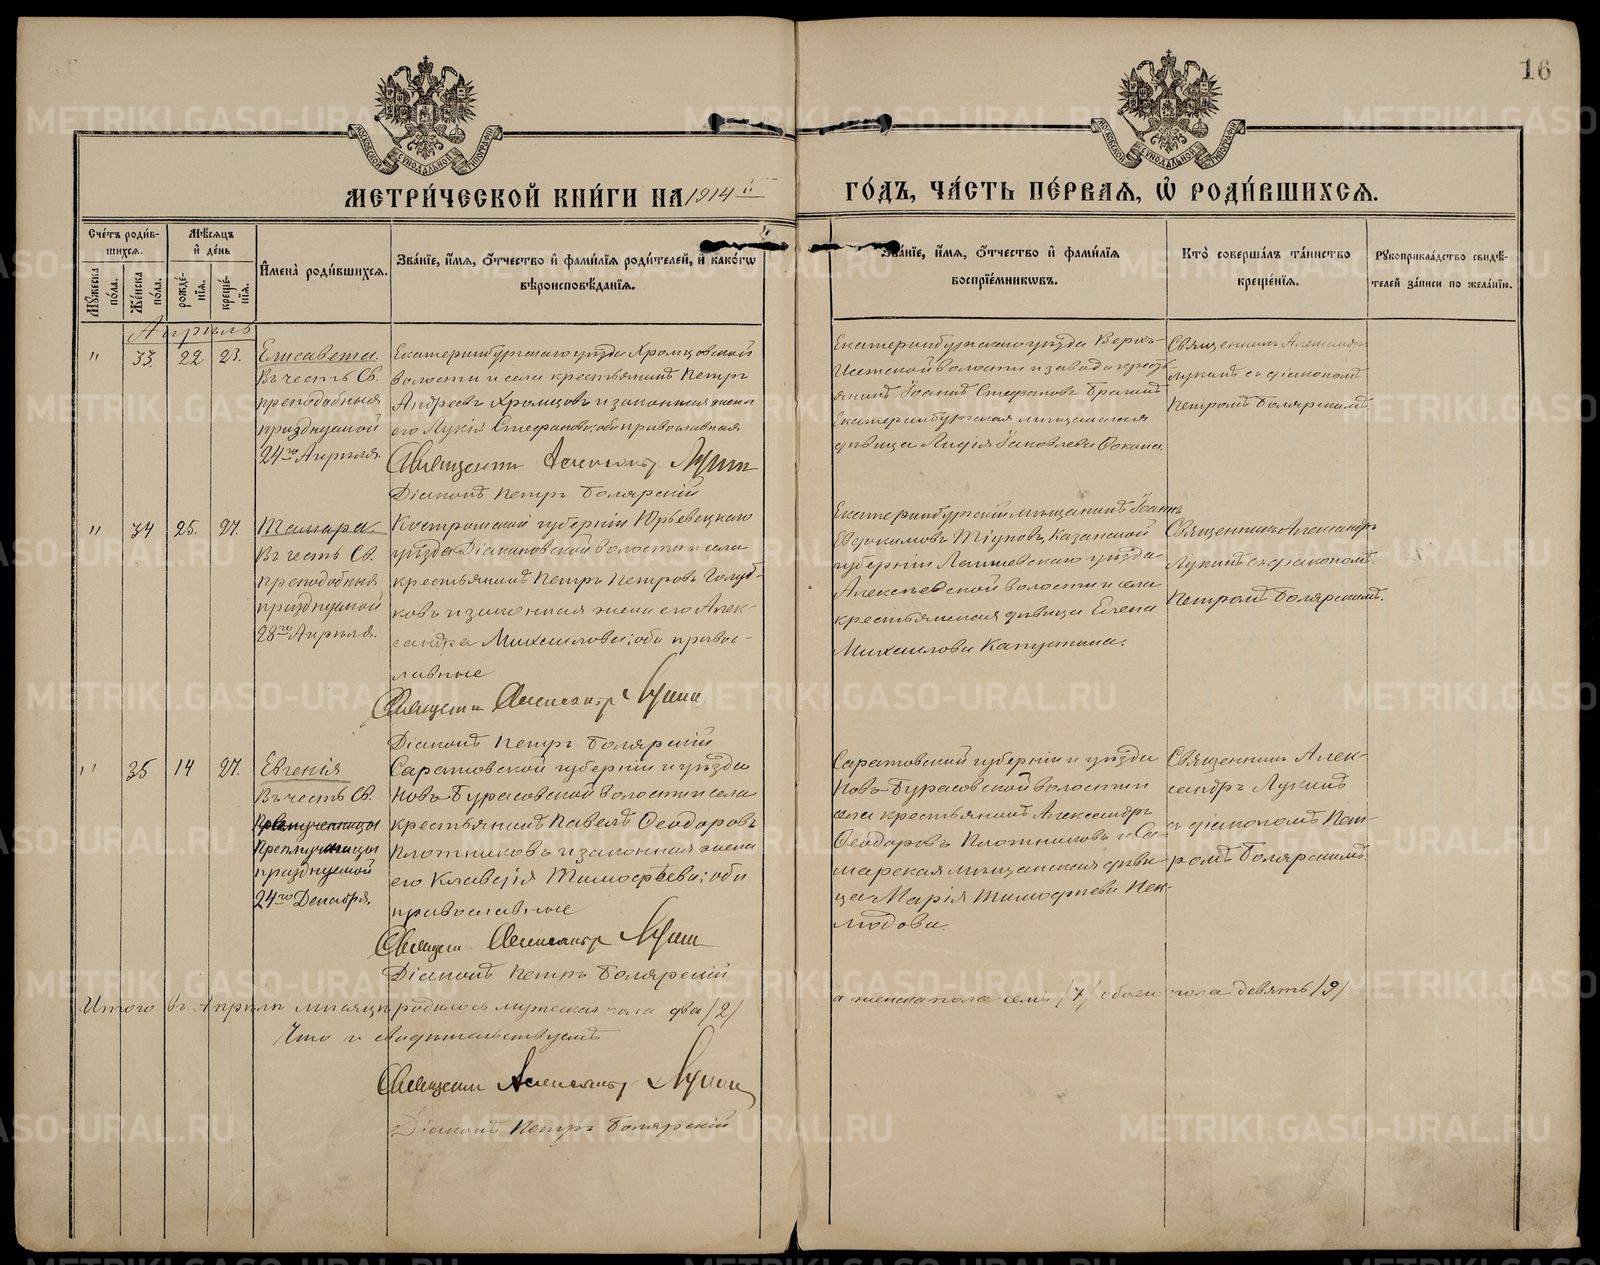 16
МЕТРИ́ЧЕСКОЙ КНИ́ГИ НА 1914 й
ГО́ДЪ, ЧА́СТЬ ПЕ́РВАЯ, Ѿ РОДИ́ВШИХСЯ.
Сче́тъ роди́в-
шихся.
Мꙋжеска по́ла.
Же́нска по́ла.
Мѣ́сяцъ и҆ де́нь
рожде́-нїя.
креще́-нїя.
И҆мена̀ роди́вшихся.
Зва́нїе, и҆́мя, ѻ҆́тчество и҆ фами́лїя роди́телей, и҆ како́гѡ
вѣроисповѣ́данїя.
Зва́нїе, и҆́мя, ѻ҆́тчество и҆ фами́лїя
воспрїе́мникѡвъ.
Кто̀ соверша́лъ та́инство
креще́нїя.
Рꙋкоприкла́дство свидѣ́-
телей за́писи по жела́нїю.
Апрѣль
" 33 22 23.
Елисавета
Въ честь Св.
преподобныя
празднуемой
24го Апрѣля.
Екатеринбургскаго уѣзда Хромцовской
волости и села крестьянинъ Петръ
Андреевъ Хромцовъ и законная жена
его Лукія Стефановна; оба православные
Священникъ Александръ Лукинъ
Діаконъ Петръ Болярскій
Екатеринбургскаго уѣзда Верхъ-
Исетской волости и завода кресть-
янинъ Іоаннъ Стефановъ
Екатеринбургская мѣщанская
дѣвица Лидія Іаковлева
Священникъ Александръ
Лукинъ съ діакономъ
Петромъ Болярскимъ.
" 34 25. 27.
Тамара.
Въ честь Св.
преподобныя
празднуемой
28го Апрѣля.
Костромской губерніи Юрьевецкаго
уѣзда волости и села
крестьянинъ Петръ Петровъ Голуб-
ковъ и законная жена его Алек-
сандра Михаилова; оба правос-
лавные
Священникъ Александръ Лукинъ
Діаконъ Петръ Болярскій
Екатеринбургскій мѣщанинъ Іоаннъ
Евдокимовъ Тіуновъ, Казанской
губерніи Лаишевскаго уѣзда
Алексѣевской волости и села
крестьянская дѣвица Елена
Михаилова Капустина.
Священникъ Александръ
Лукинъ съ діакономъ
Петромъ Болярскимъ.
" 35 14 27.
Евгенія
Въ честь Св.
Препмученицы
празднуемой
24го Декабря.
Саратовской губерніи и уѣзда
Ново-Бурасовской волости и села
крестьянинъ Павелъ Ѳеодоровъ
Плотниковъ и законная жена
его Клавдія Тимоѳеева; оба
православные
Священникъ Александръ Лукинъ
Діаконъ Петръ Болярскій
Саратовской губерніи и уѣзда
Ново-Бурасовской волости и
села крестьянинъ Александръ
Ѳеодоровъ Плотниковъ и Са-
марская мѣщанская дѣви-
ца Марія Тимоѳеева Нек-
людова.
Священникъ Алек-
сандръ Лукинъ
съ діакономъ Пет-
ромъ Болярскимъ.
Итого въ Апрѣлѣ мѣсяцѣ родилось мужеска пола два /2/
а женска пола семь /7/ обоего пола девять /9/
Что и свидѣтельствуемъ
Священникъ Александръ Лукинъ
Діаконъ Петръ Болярскій